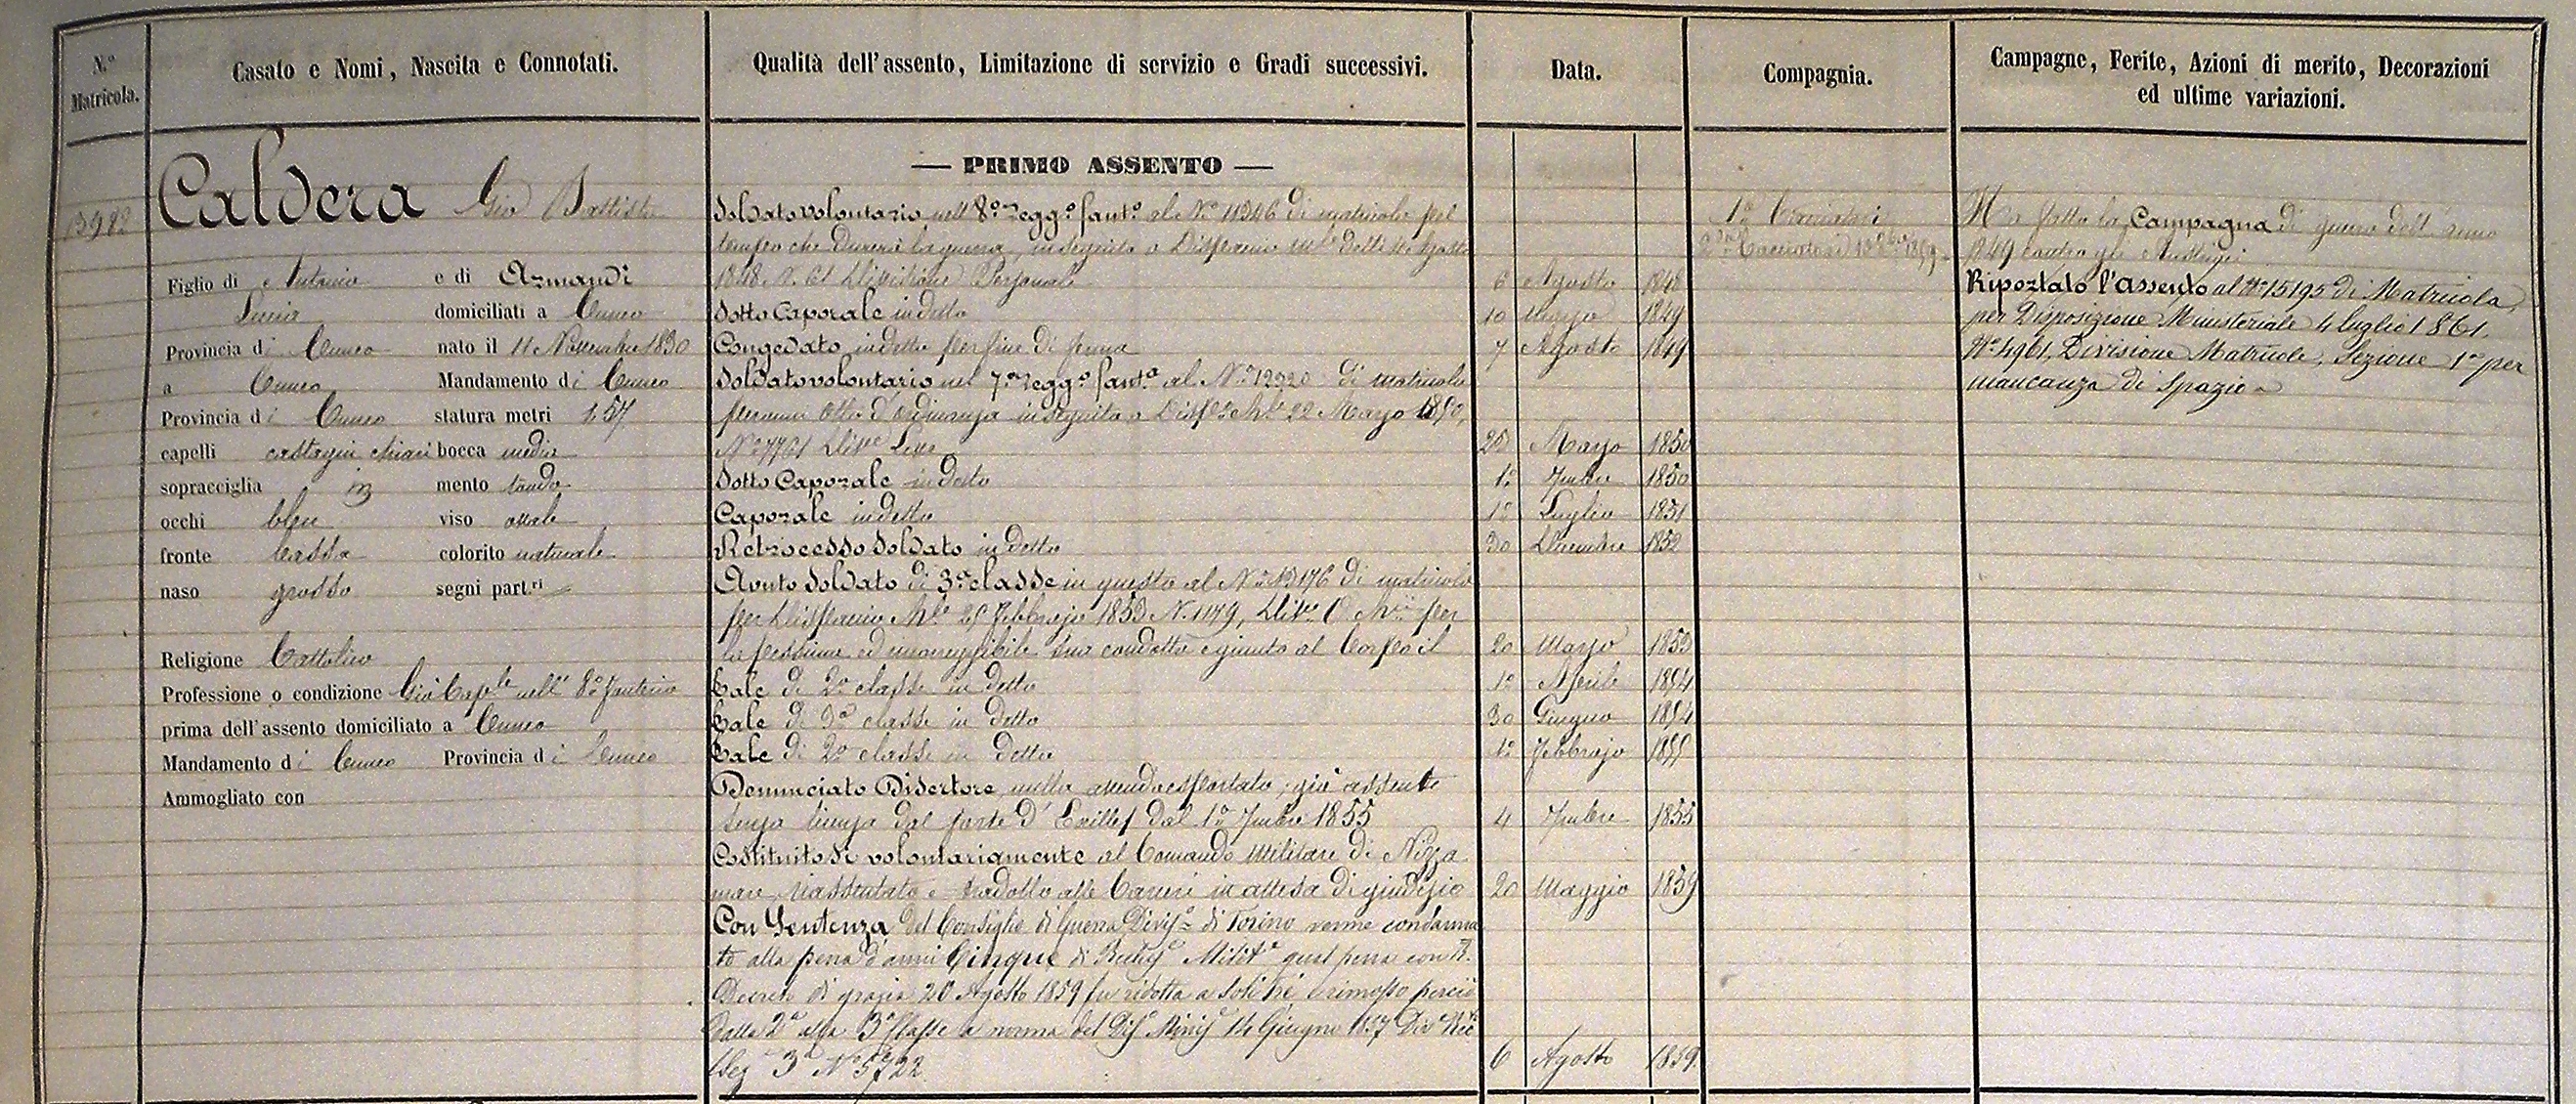 N.º Matricola.
Casato e Nomi, Nascita e Connotati.
Qualità dell'assento, Limitazione di servizio e Gradi successivi.
Data.
Compagnia.
Campagne, Ferite, Azioni di merito, Decorazioni
ed ultime variazioni.
13982
Caldera Gio Battista
Figlio di Antonio e di Armandi
Lucia domiciliati a Cuneo
Provincia di Cuneo nato il 11 Novembre 1830
a Cuneo Mandamento di Cuneo
Provincia di Cuneo statura metri 1,57
capelli castagni chiari bocca media
sopracciglia id mento tondo
occhi bleu viso ovale
fronte bassa colorito naturale
naso grosso segni part.ri
Religione Cattolica
Professione o condizione Già Cap.le nell' 8º Fanteria
prima dell'assento domiciliato a Cuneo
Mandamento di Cuneo Provincia di Cuneo
Ammogliato con
— PRIMO ASSENTO —
Soldato volontario nell' 8º Regg.º fant.ª al Nº 11346 di matricola pel
tempo che durerà la guerra, in seguito a Dispaccio Agosto
1848 N. 61 Divisione Personale 6 Agosto 1848
Sotto Caporale in detto 10 1849
Congedato in detto per fine di ferma 7 Agosto 1849
Soldato volontario nel 7º Regg.º fant.ª al Nº 12920 di matricola
per anni Otto d'ordinanza in seguito a Disp.º M.le 22 Marzo 1850,
Nº 7761 Div.e Leve 25 Marzo 1850
Sotto Caporale in detto 1º 7mbre 1850
Caporale in detto 1º Luglio 1851
Retrocesso Soldato in detto 30 Dicembre 1852
Avuto Soldato di 3ª classe in questo al Nº 13176 di matricola
per Dispaccio M.le Febbrajo 1853 N. 1179, Div.e per
la pessima ed incorreggibile sua condotta e giunto al Corpo il 20 Marzo 1853
Tale di 2ª classe in detto 1º Aprile 1854
Tale di 3ª classe in detto 30 Giugno 1854
Tale di 2ª classe in detto 1º Febbrajo 1855
Denunciato Disertore, nulla avendo esportato, già assente
senza licenza dal forte d'Exilles dal 1º 7mbre 1855 4 7mbre 1855
Costituitosi volontariamente al Comando Militare di Nizza
mare, riassentato e tradotto alle Carceri in attesa di giudizio 20 Maggio 1859
Con Sentenza del Consiglio di Guerra Divis.º di Torino venne condanna
to alla pena d'anni Cinque di Reclus.e Milit.e qual pena con R.
Decreto di grazia 20 Agosto 1859 fu ridotta a soli tre e rimosso perciò
dalla 2ª alla 3ª Classe a norma del Disp.º Minis.e 14 Giugno 1857 Div.e
Sez 3ª Nº 5722. 6 Agosto 1859.
1ª Cacciatori
2ª Cacciatori 1859
Ha fatto la Campagna di guerra dell'anno
1849 contro gli Austriaci
Riportato l'assento al Nº 15195 di Matricola
per Disposizione Ministeriale 4 luglio 1861,
Nº 4961, Divisione Matricole, Sezione 1ª per
mancanza di spazio